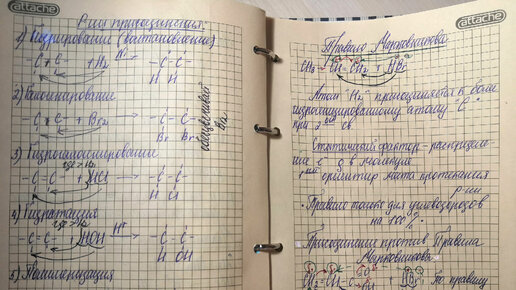 attache
Р-ции присоединения
1) Гидрирование (восстановление)
-С = С- + H₂ Ni → -С-С-
H H
2) Галогенирование
-С = С- + Br₂ → -С-С-
Br Br
обесцвечивание
3) Гидрогалогенирование
-С = С- + HCl → -С-С-
H Cl
4) Гидратация
-С = С- + HOH H⁺ → -С-С-
H OH
5) Полимеризация
attache
Правило Марковникова
CH₃ - CH = CH₂ + HBr
Атом "H" присоединяется к более
гидрогенизированному атому "С"
при
Статический фактор - распределе-
ние в молекуле
ориентир места протекания
р-ции
Правило только для углеводородов
на 100%.
Присоединение против Правила
Марковникова
По правилу